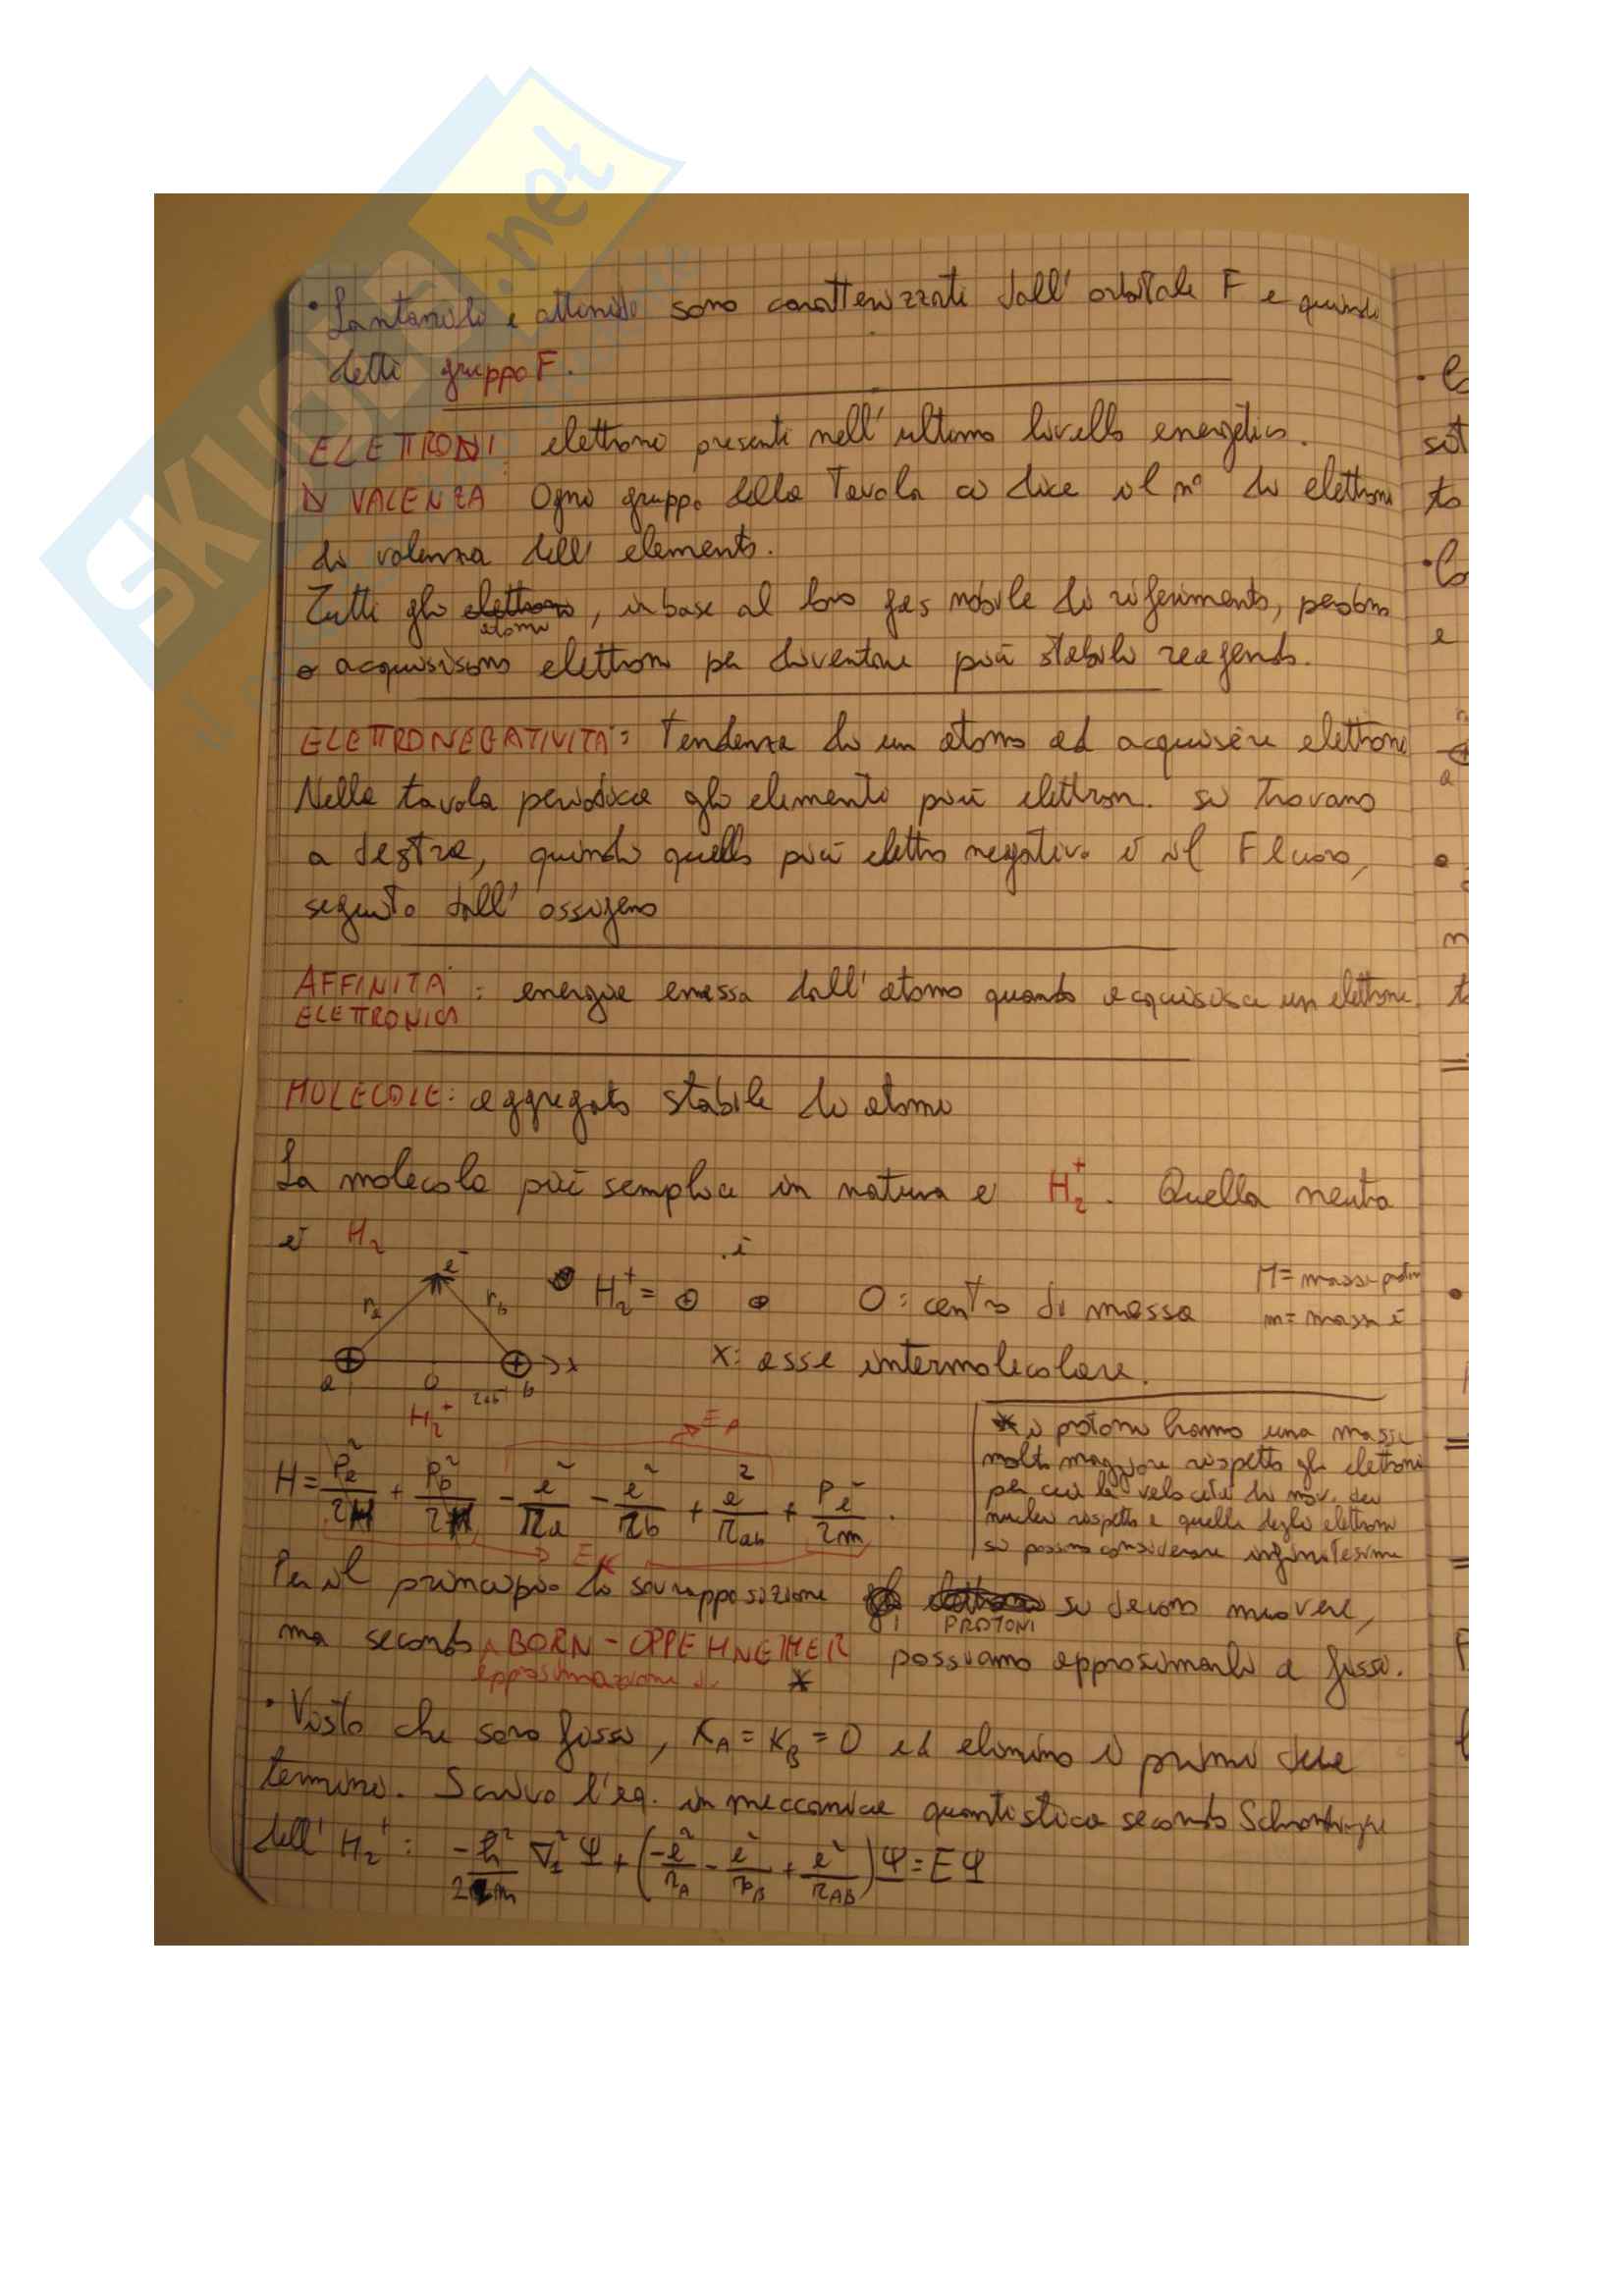 SKUOLA.net
• Lantanidi e attinidi sono caratterizzati dall' orbitale F e quindi
detti gruppo F.
ELETTRONI: elettroni presenti nell'ultimo livello energetico.
DI VALENZA Ogni gruppo della Tavola ci dice il n° di elettroni
di valenza dell' elemento.
Tutti gli elettroni, in base al loro gas nobile di riferimento, perdono
atomi
o acquisiscono elettroni per diventare più stabili reagendo.
ELETTRONEGATIVITÀ: Tendenza di un atomo ad acquisire elettroni
Nella tavola periodica gli elementi più elettron. si trovano
a destra, quindi quello più elettro negativo è il Fluoro,
seguito dall' ossigeno
AFFINITÀ : energia emessa dall'atomo quando acquisisce un elettrone
ELETTRONICA
MOLECOLE: aggregato stabile di atomi
La molecola più semplice in natura e H₂⁺. Quella neutra
è H₂
e⁻
ra rb
H₂⁺= ⊕ ⊕ O: centro di massa
M= massa protoni
m= massa e⁻
a O b x
rab
x: asse intermolecolare.
H₂⁺
EP
* i protoni hanno una massa
molto maggiore rispetto gli elettroni
per cui la velocità di mov. dei
nuclei rispetto a quella degli elettroni
si possono considerare infinitesime
H = Pa²/2M + Pb²/2M - e²/ra - e²/rb + e²/rab + Pe²/2m .
EK
Per il principio di sovrapposizione i PROTONI si devono muovere,
ma secondo BORN-OPPEHNEIMER possiamo approssimarli a fissi.
approssimazione di *
• Visto che sono fissi, KA = KB = 0 ed elimino i primi due
termini. Scrivo l'eq. in meccanica quantistica secondo Schrondinger
dell' H₂⁺: -ħ²/2m ∇₁² Ψ + (-e²/rA - e²/rB + e²/rAB)Ψ = EΨ